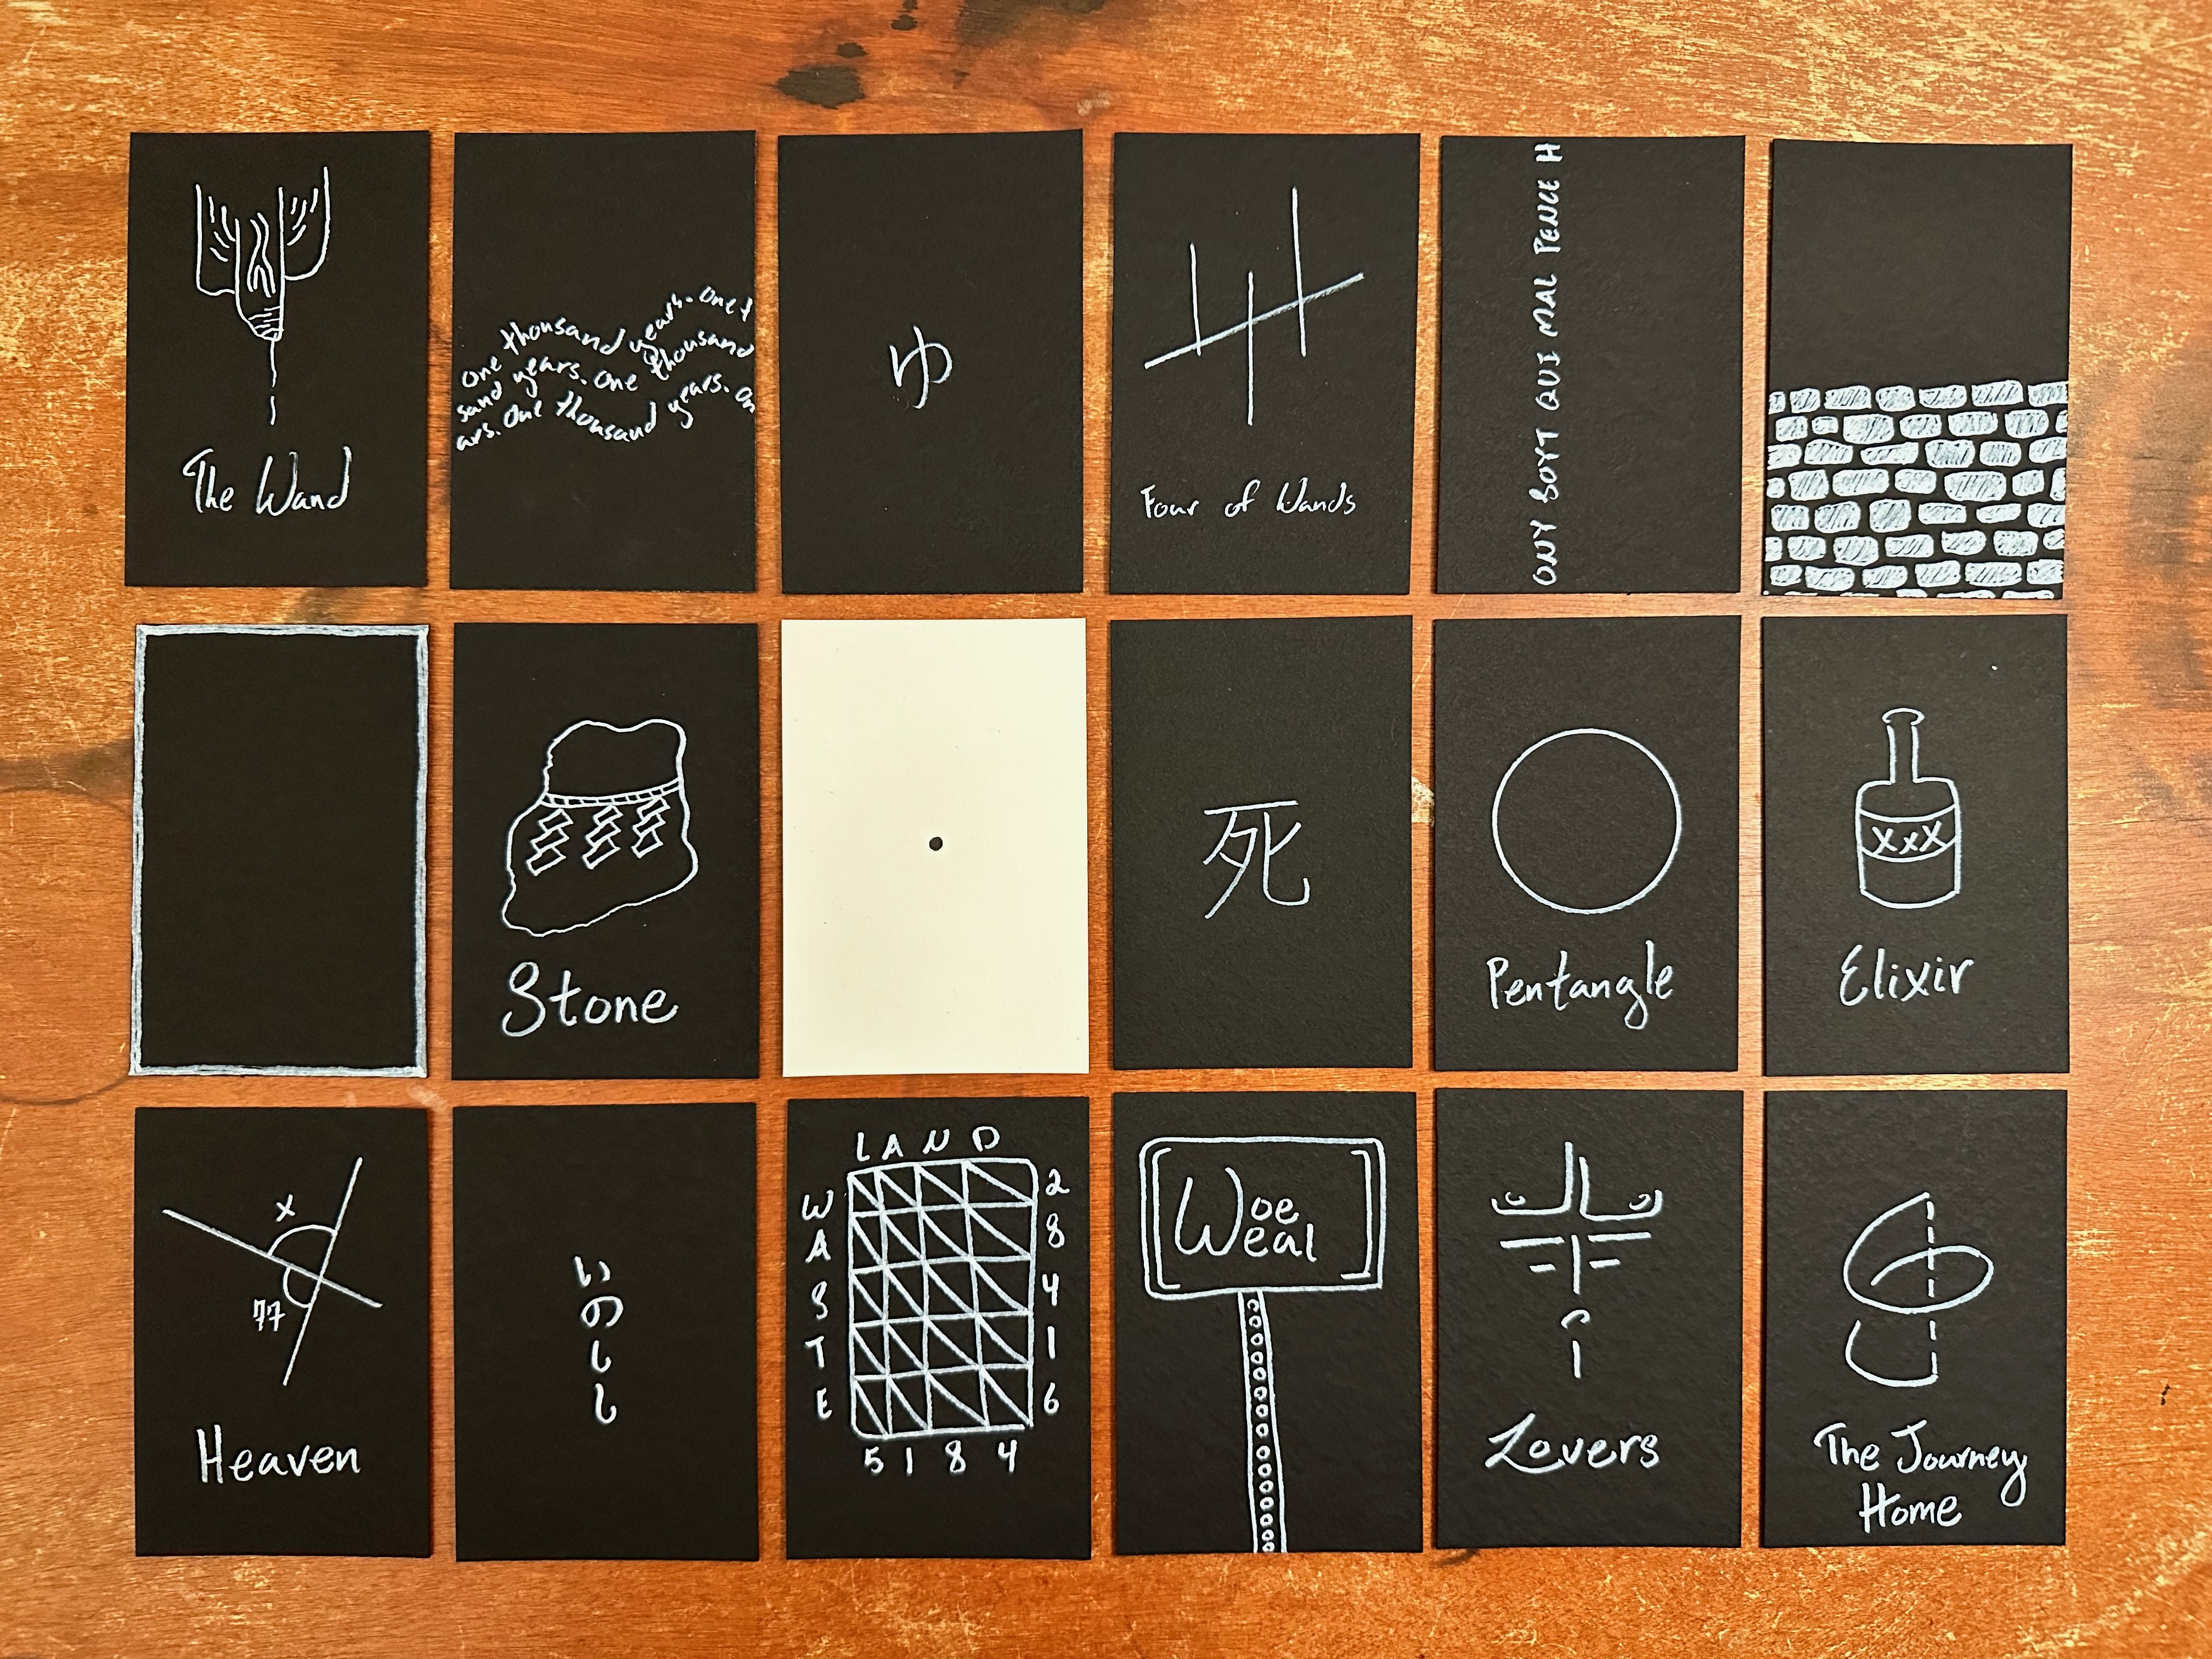 The Wand
one thousand years. one t
sand years. one thousand
ars. one thousand years. on
ゆ
Four of Wands
ONY SOYT QUI MAL PENCE H
Stone
死
Pentangle
XXX
Elixir
x
77
Heaven
いのしし
LAND
W 2
A 8
S 4
T 1
E 6
5 1 8 4
Woe
Weal
Lovers
The Journey
Home